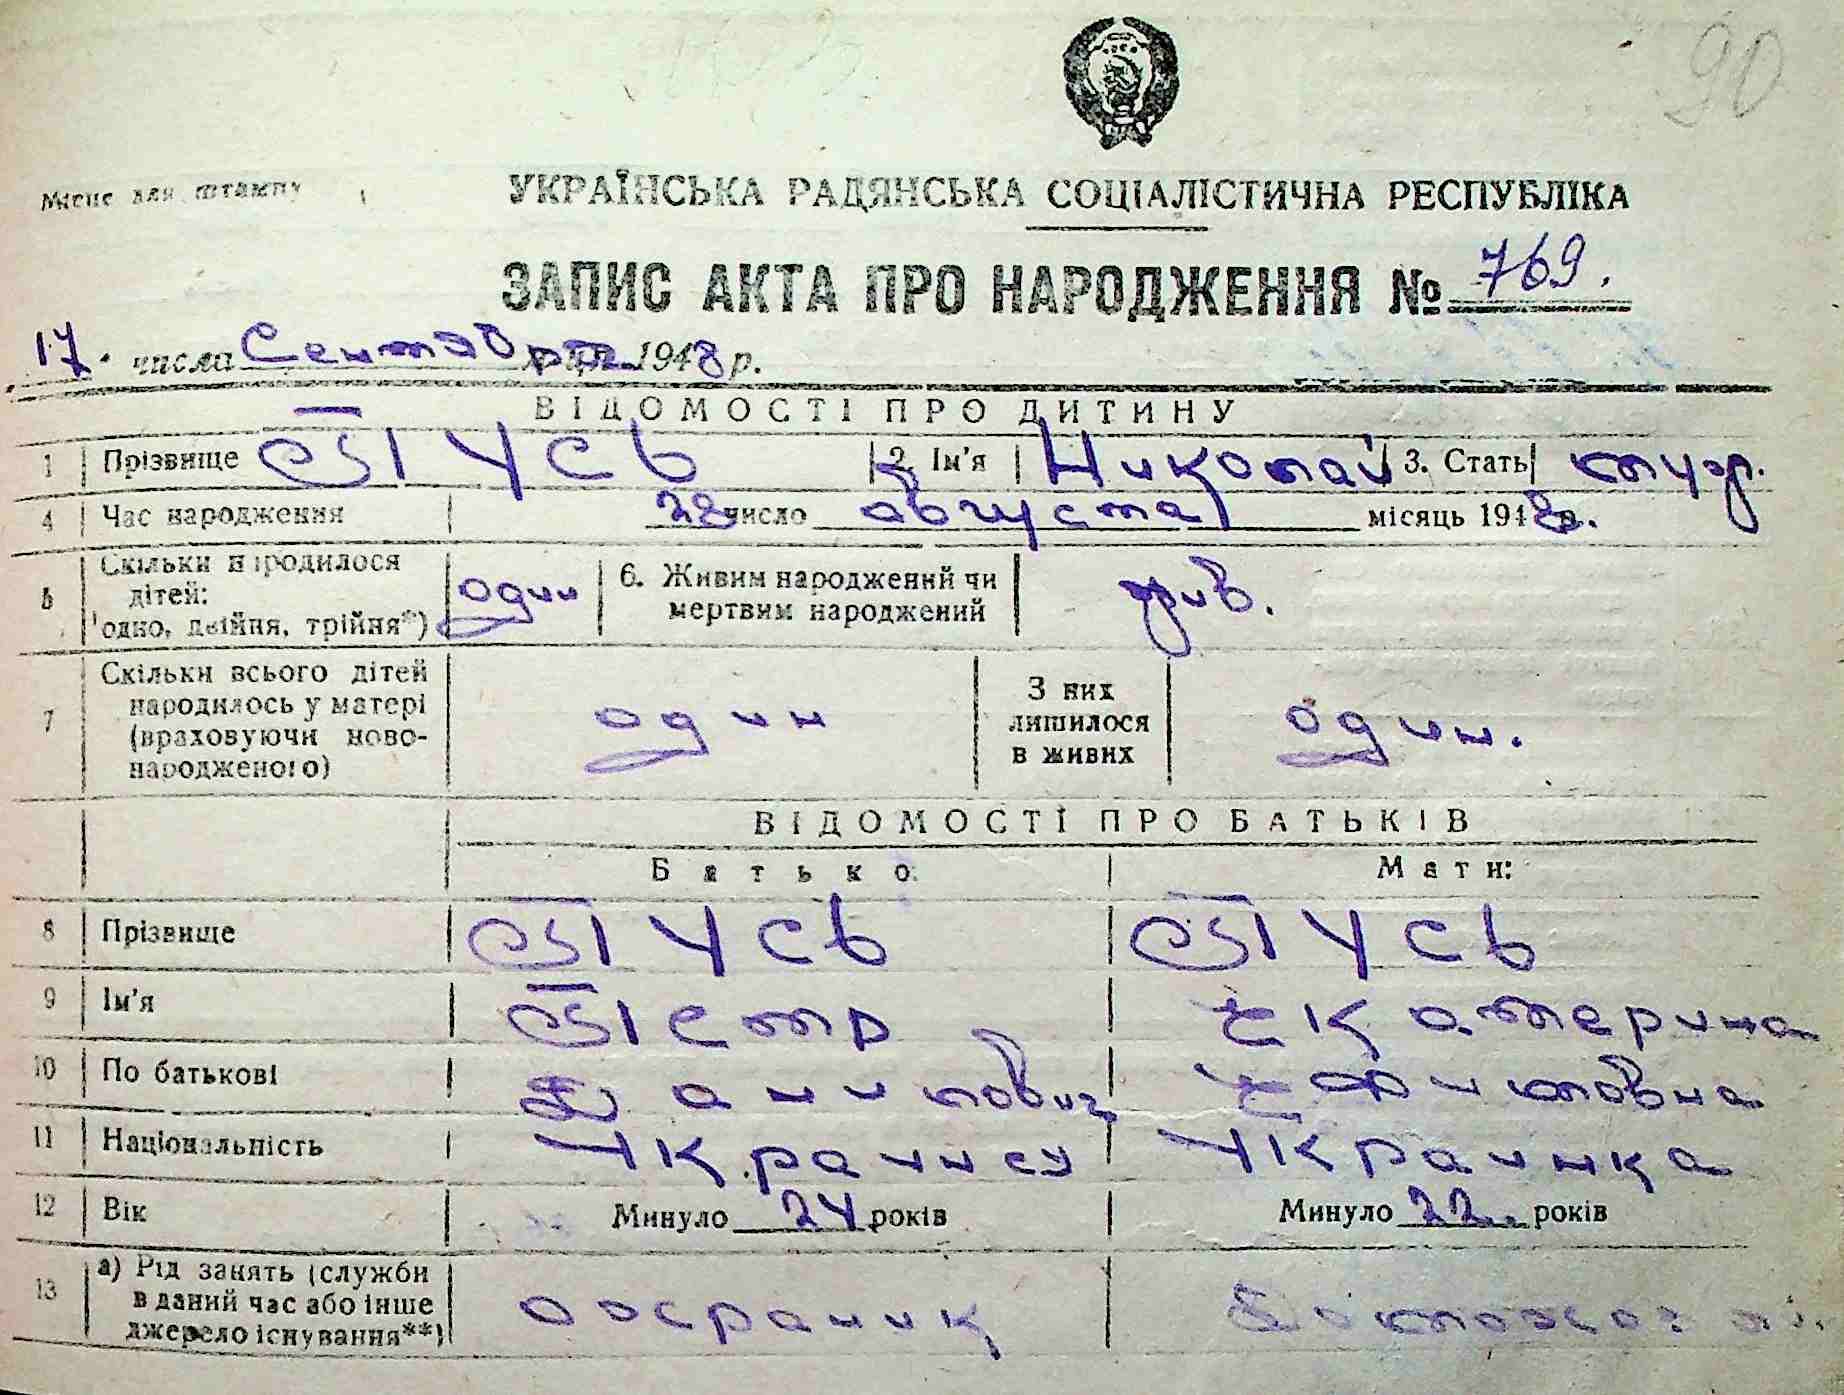 90
Місце для штампу
УКРАЇНСЬКА РАДЯНСЬКА СОЦІАЛІСТИЧНА РЕСПУБЛІКА
ЗАПИС АКТА ПРО НАРОДЖЕННЯ № 769.
17. числа Сентября 1948 р.
ВІДОМОСТІ ПРО ДИТИНУ
1 Прізвище Гусь 2. Ім'я Николай 3. Стать муж.
4 Час народження 28 число августа місяць 1948 р.
5 Скільки народилося дітей: одно, двійня, трійня*) один 6. Живим народжений чи мертвим народжений жив.
7 Скільки всього дітей народилось у матері (враховуючи ново-народженого) один З них лишилося в живих один.
ВІДОМОСТІ ПРО БАТЬКІВ
Батько: Мати:
8 Прізвище Гусь Гусь
9 Ім'я Петр Екатерина
10 По батькові Данилович
11 Національність Украинец Украинка
12 Вік Минуло 24 років Минуло 22 років
13 а) Рід занять (служби в даний час або інше джерело існування**)